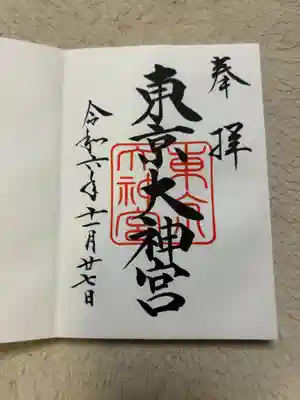 奉拝
東京大神宮
東京大神宮
令和六年十一月廿七日